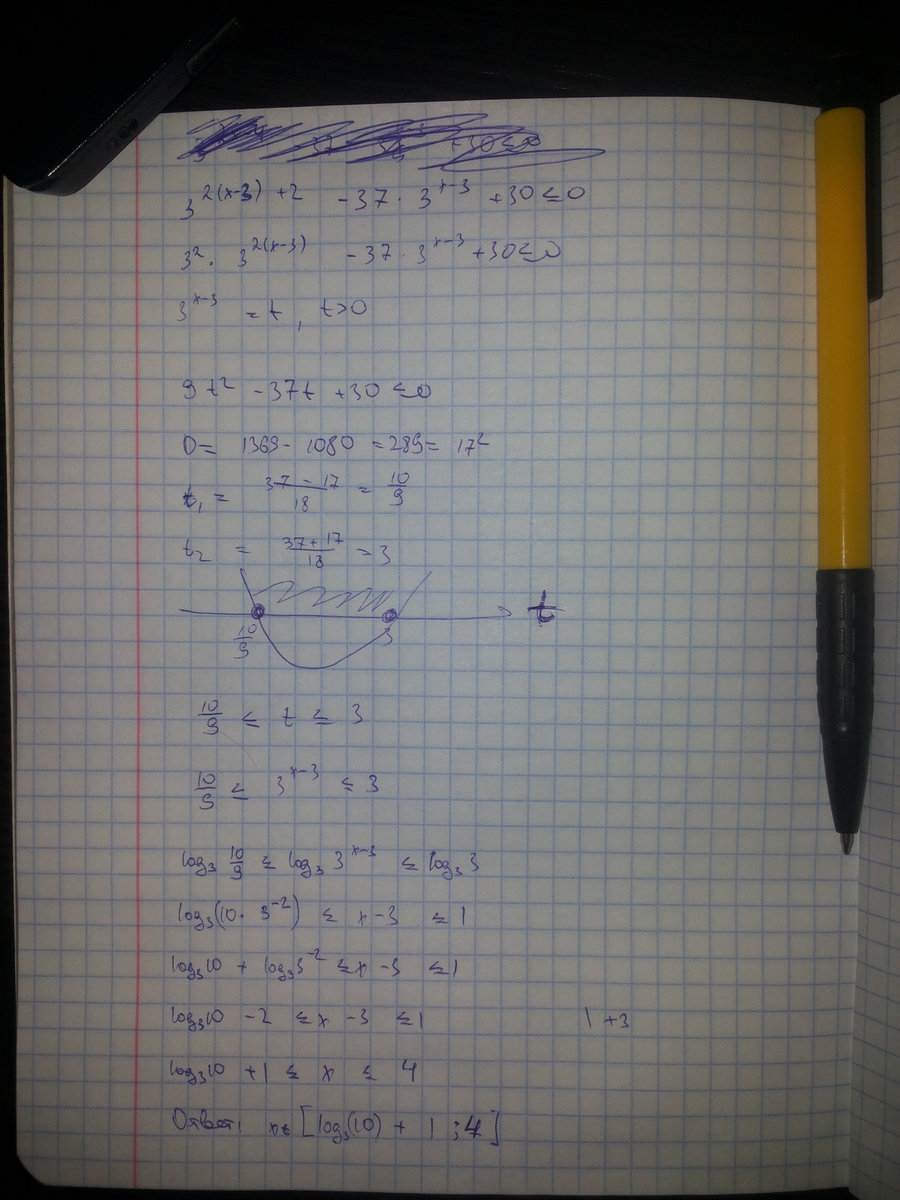 +30≤0
3^{2(x-3)+2} - 37 · 3^{x-3} + 30 ≤ 0
3^2 · 3^{2(x-3)} - 37 · 3^{x-3} + 30 ≤ 0
3^{x-3} = t, t>0
9t^2 - 37t + 30 ≤ 0
D = 1369 - 1080 = 289 = 17^2
t_1 = (37 - 17)/18 = 10/9
t_2 = (37 + 17)/18 = 3
t
10/9 3
10/9 ≤ t ≤ 3
10/9 ≤ 3^{x-3} ≤ 3
log_3 10/9 ≤ log_3 3^{x-3} ≤ log_3 3
log_3(10 · 3^{-2}) ≤ x-3 ≤ 1
log_3 10 + log_3 3^{-2} ≤ x - 3 ≤ 1
log_3 10 - 2 ≤ x - 3 ≤ 1 1+3
log_3 10 + 1 ≤ x ≤ 4
Ответ: x∈ [log_3(10) + 1 ; 4]